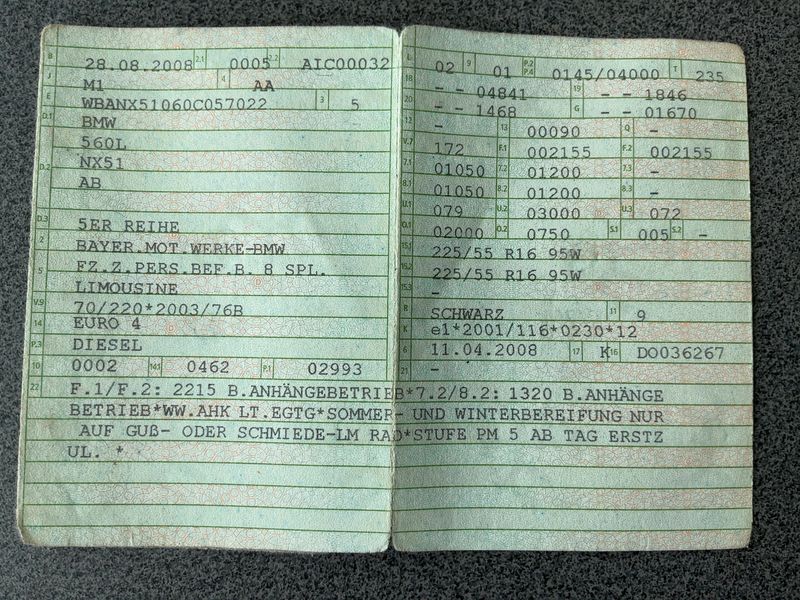 B 28.08.2008 2.1 0005 2.2 AIC00032
J M1 4 AA
E WBANX51060C057022 3 5
D.1 BMW
560L
D.2 NX51
AB
D.3 5ER REIHE
2 BAYER.MOT.WERKE-BMW
5 FZ.Z.PERS.BEF.B. 8 SPL.
LIMOUSINE
V.9 70/220*2003/76B
14 EURO 4
P.3 DIESEL
10 0002 14.1 0462 P.1 02993
L 02 9 01 P.2 P.4 0145/04000 T 235
18 - - 04841 19 - - 1846
20 - - 1468 G - - 01670
12 - 13 00090 Q -
V.7 172 F.1 002155 F.2 002155
7.1 01050 7.2 01200 7.3 -
8.1 01050 8.2 01200 8.3 -
U.1 079 U.2 03000 U.3 072
O.1 02000 O.2 0750 S.1 005 S.2 -
15.1 225/55 R16 95W
15.2 225/55 R16 95W
15.3 -
R SCHWARZ 11 9
K e1*2001/116*0230*12
6 11.04.2008 17 K 16 DO036267
21 -
22 F.1/F.2: 2215 B.ANHÄNGEBETRIEB*7.2/8.2: 1320 B.ANHÄNGE
BETRIEB*WW.AHK LT.EGTG*SOMMER- UND WINTERBEREIFUNG NUR
AUF GUß- ODER SCHMIEDE-LM RAD*STUFE PM 5 AB TAG ERSTZ
UL. *